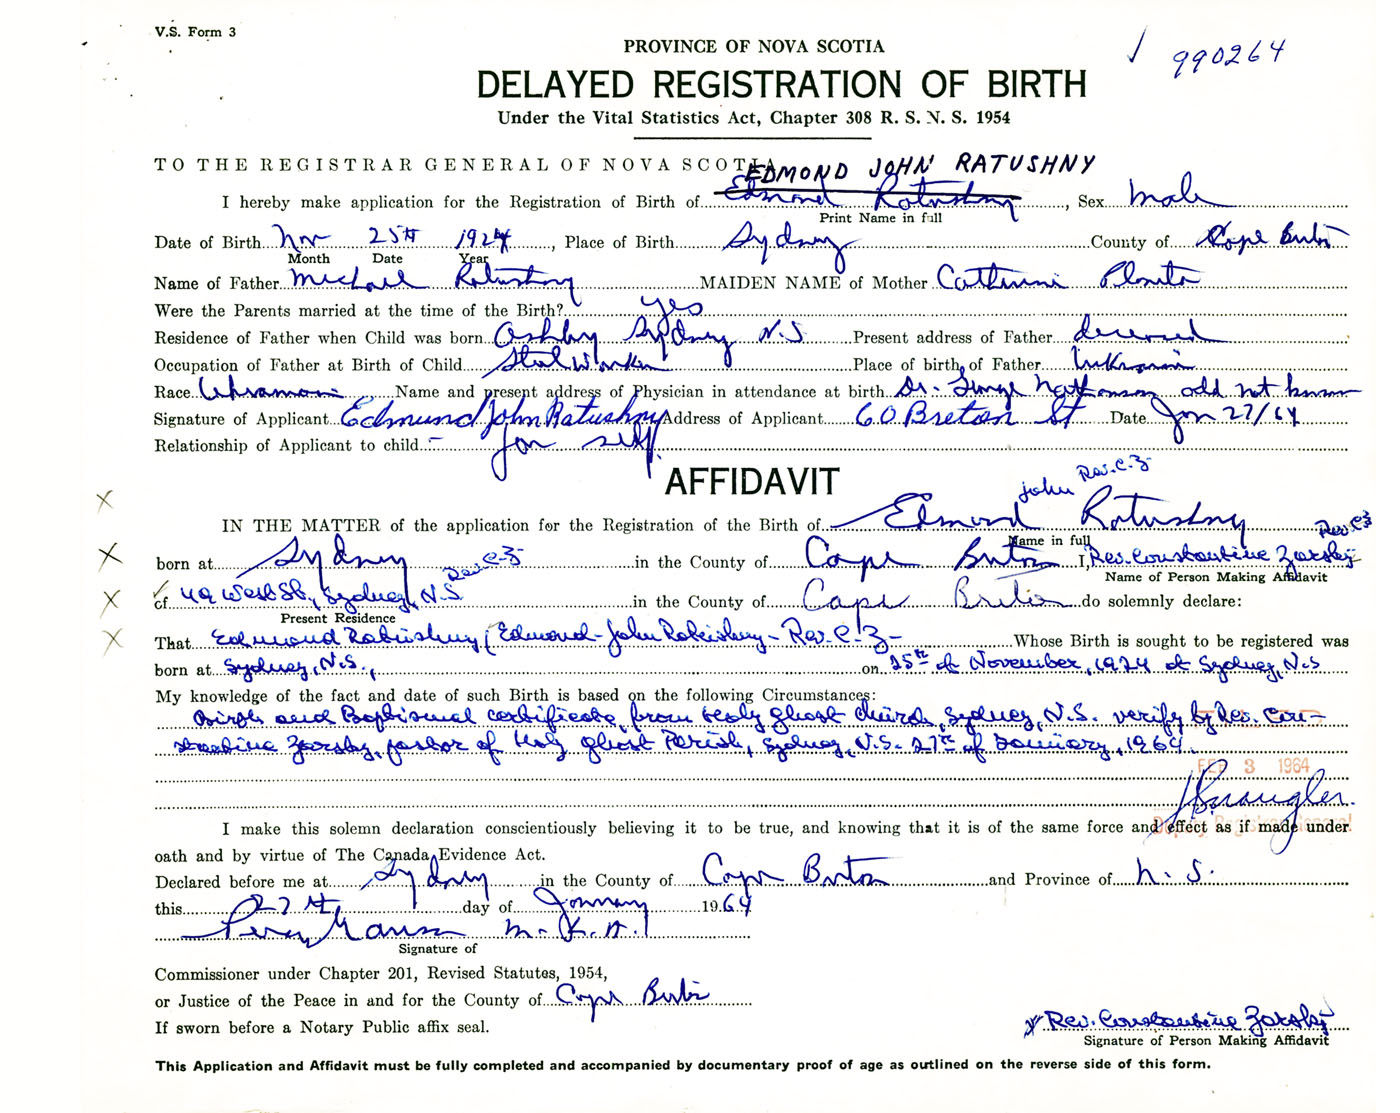 V.S. Form 3
990264
PROVINCE OF NOVA SCOTIA
DELAYED REGISTRATION OF BIRTH
Under the Vital Statistics Act, Chapter 308 R. S. N. S. 1954
TO THE REGISTRAR GENERAL OF NOVA SCOTIA
EDMOND JOHN RATUSHNY
I hereby make application for the Registration of Birth of Edmond Ratushny, Sex male
Print Name in full
Date of Birth Nov 25th 1924, Place of Birth Sydney County of Cape Breton
Month Date Year
Name of Father Michael Ratushny MAIDEN NAME of Mother Catherine
Were the Parents married at the time of the Birth? yes
Residence of Father when Child was born Ashby Sydney N.S Present address of Father deceased
Occupation of Father at Birth of Child Steel Worker Place of birth of Father Ukraine
Race Ukranian Name and present address of Physician in attendance at birth Dr. George Nathanson add not known
Signature of Applicant Edmund John Ratushny Address of Applicant 60 Breton St Date Jan 27/64
Relationship of Applicant to child - for self
AFFIDAVIT
John Rev. C. Z.
IN THE MATTER of the application for the Registration of the Birth of Edmond Ratushny
Name in full Rev. C Z
born at Sydney in the County of Cape Breton I, Rev. Constantine Zarsky
Rev. C. Z. Name of Person Making Affidavit
of 49 West St., Sydney, N.S in the County of Cape Breton do solemnly declare:
Present Residence
That Edmond Ratushny (Edmond-John Ratushny - Rev. C. Z - Whose Birth is sought to be registered was
born at Sydney, N.S., on 25th of November, 1924 at Sydney, N.S
My knowledge of the fact and date of such Birth is based on the following Circumstances:
Birth and Baptismal certificate from Holy Ghost Church, Sydney, N.S. verify by Rev. Con-
stantine Zarsky, pastor of Holy Ghost Parish, Sydney, N.S. 27th of January, 1964.
FEB 3 1964
I make this solemn declaration conscientiously believing it to be true, and knowing that it is of the same force and effect as if made under
Deputy Registrar General
oath and by virtue of The Canada Evidence Act.
Declared before me at Sydney in the County of Cape Breton and Province of N. S.
this 27th day of January 1964
Percy Gaum M.L.A.
Signature of
Commissioner under Chapter 201, Revised Statutes, 1954,
or Justice of the Peace in and for the County of Cape Breton
If sworn before a Notary Public affix seal.
x Rev. Constantine Zarsky
Signature of Person Making Affidavit
This Application and Affidavit must be fully completed and accompanied by documentary proof of age as outlined on the reverse side of this form.